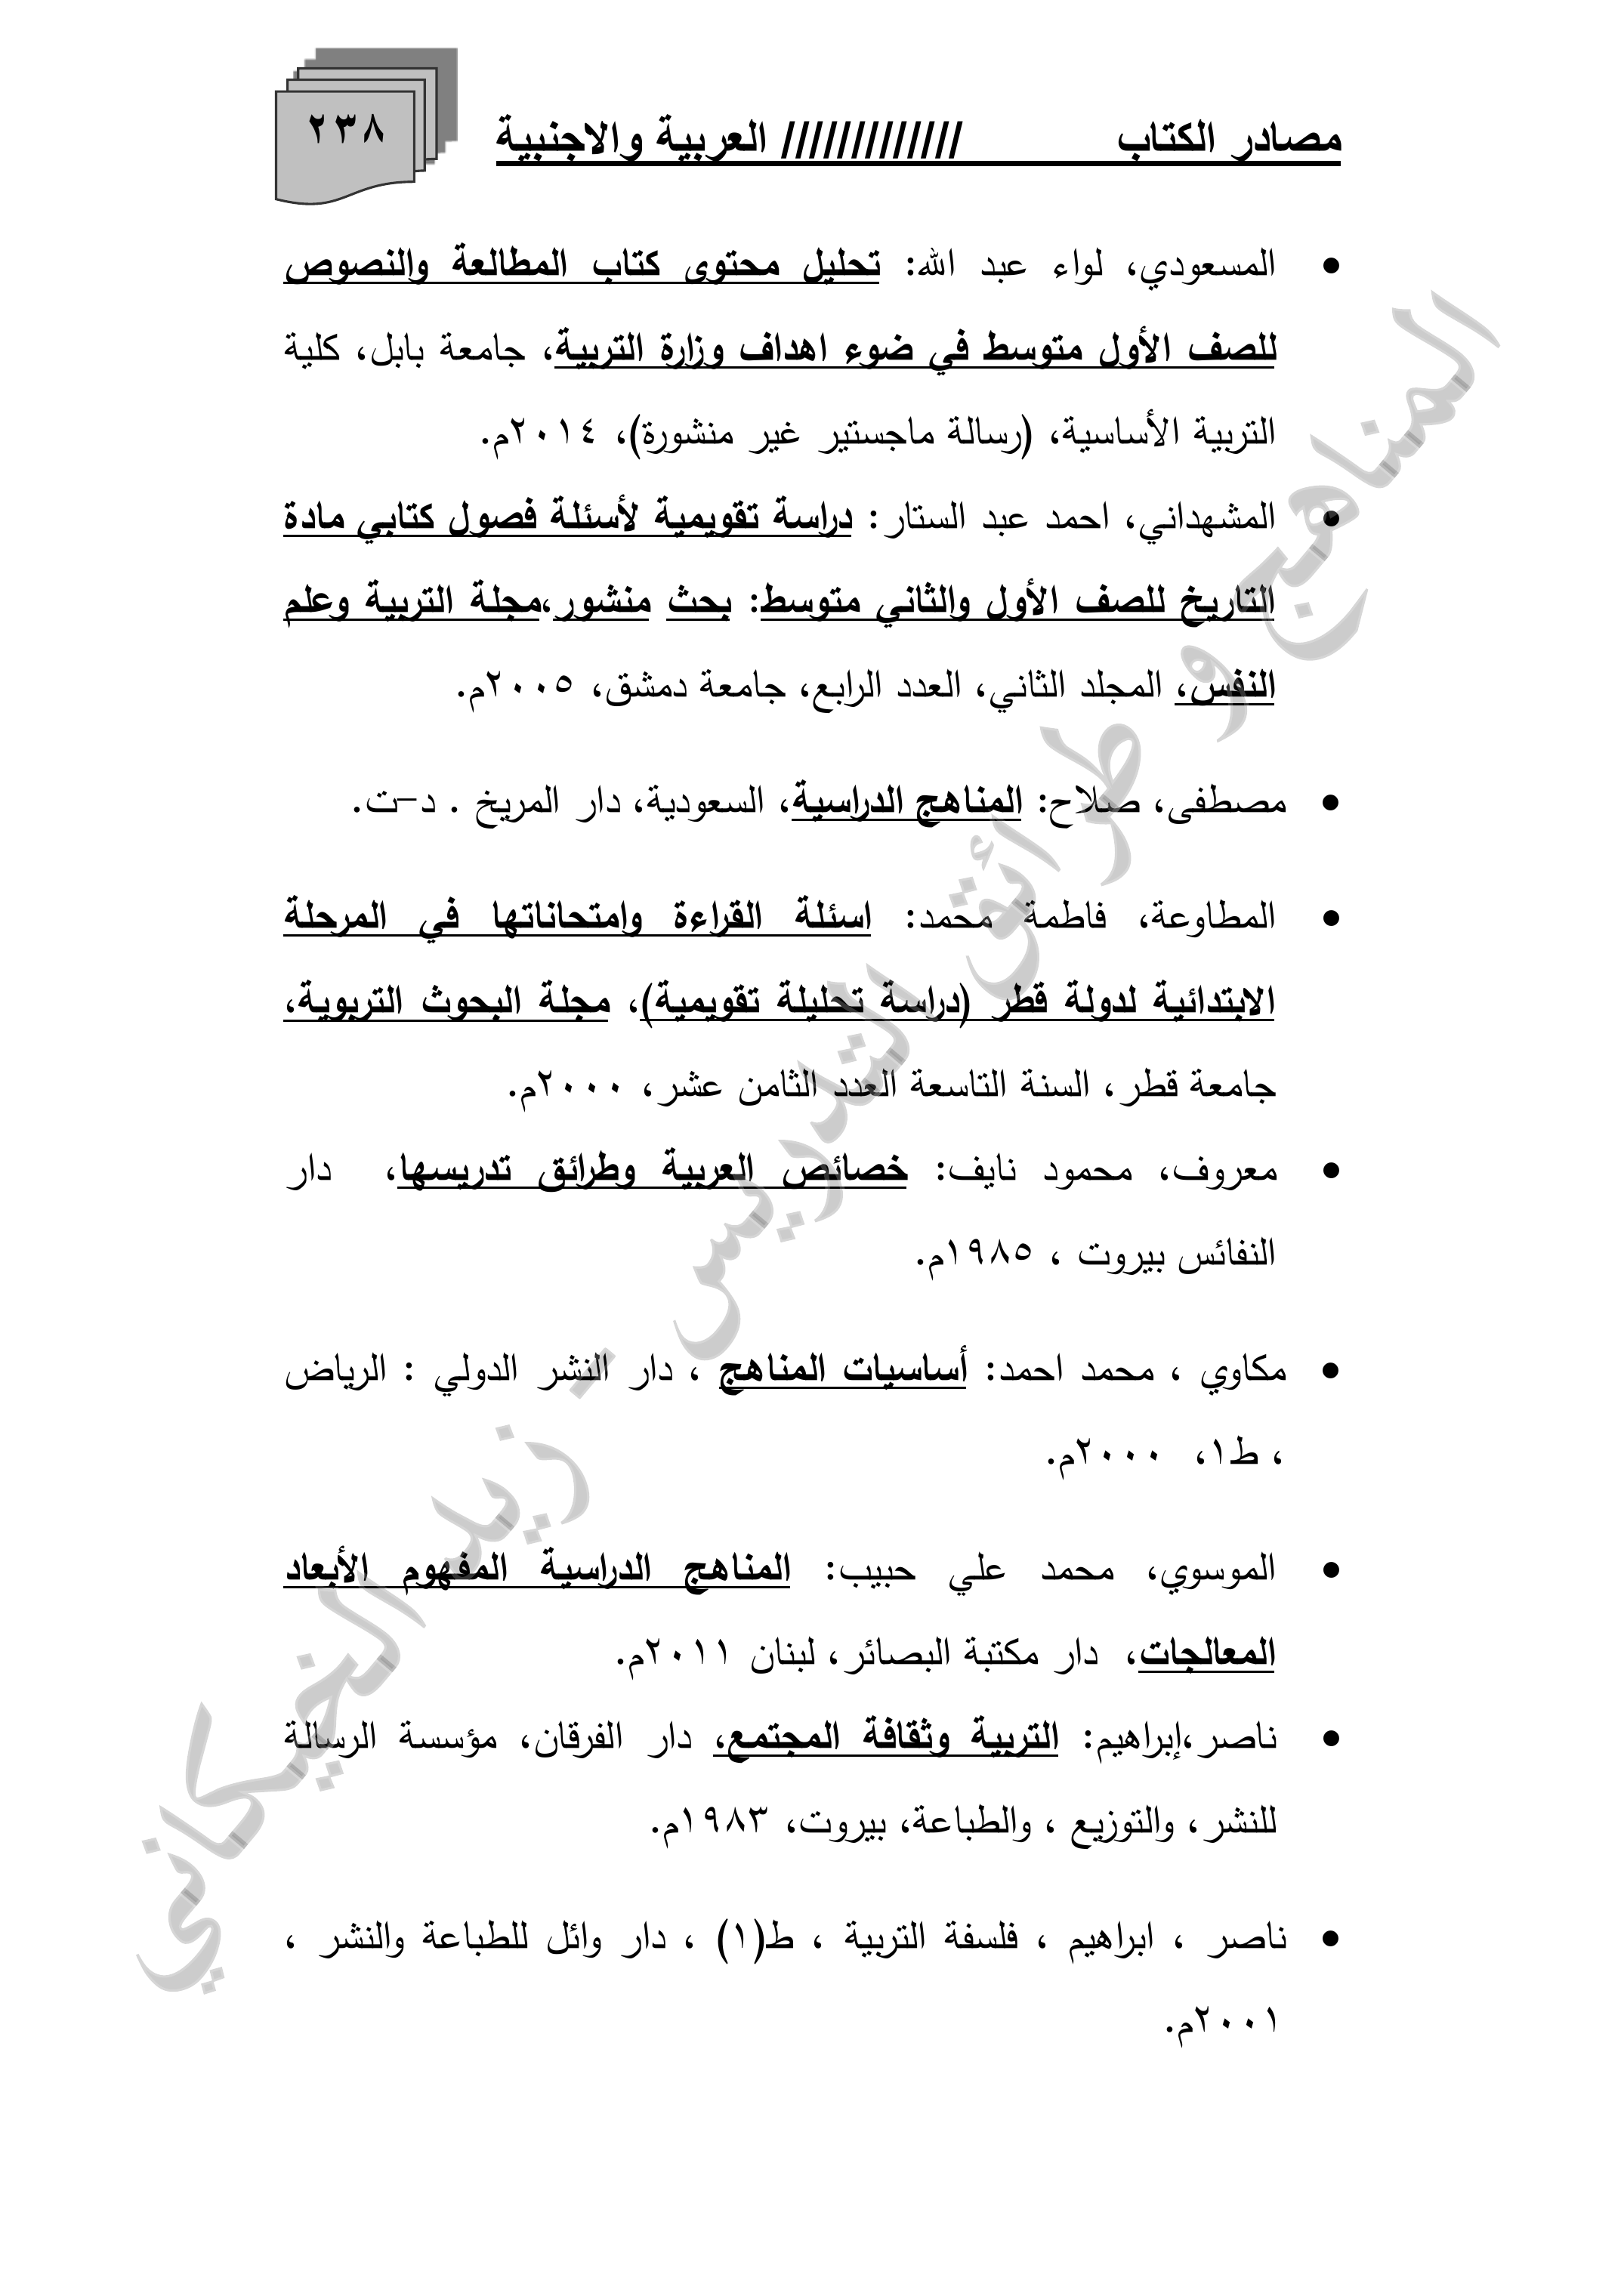 مصادر الكتاب ///////////// العربية والاجنبية
٢٣٨
• المسعودي، لواء عبد الله: تحليل محتوى كتاب المطالعة والنصوص
للصف الأول متوسط في ضوء اهداف وزارة التربية، جامعة بابل، كلية
التربية الأساسية، (رسالة ماجستير غير منشورة)، ٢٠١٤م.
• المشهداني، احمد عبد الستار: دراسة تقويمية لأسئلة فصول كتابي مادة
التاريخ للصف الأول والثاني متوسط: بحث منشور،مجلة التربية وعلم
النفس، المجلد الثاني، العدد الرابع، جامعة دمشق، ٢٠٠٥م.
• مصطفى، صلاح: المناهج الدراسية، السعودية، دار المريخ . د–ت.
• المطاوعة، فاطمة محمد: اسئلة القراءة وامتحاناتها في المرحلة
الابتدائية لدولة قطر (دراسة تحليلة تقويمية)، مجلة البحوث التربوية،
جامعة قطر، السنة التاسعة العدد الثامن عشر، ٢٠٠٠م.
• معروف، محمود نايف: خصائص العربية وطرائق تدريسها، دار
النفائس بيروت ، ١٩٨٥م.
• مكاوي ، محمد احمد: أساسيات المناهج ، دار النشر الدولي : الرياض
، ط١، ٢٠٠٠م.
• الموسوي، محمد علي حبيب: المناهج الدراسية المفهوم الأبعاد
المعالجات، دار مكتبة البصائر، لبنان ٢٠١١م.
• ناصر،إبراهيم: التربية وثقافة المجتمع، دار الفرقان، مؤسسة الرسالة
للنشر، والتوزيع ، والطباعة، بيروت، ١٩٨٣م.
• ناصر ، ابراهيم ، فلسفة التربية ، ط(١) ، دار وائل للطباعة والنشر ،
٢٠٠١م.
المناهج و طرائق التدريس - زيد الخيكاني